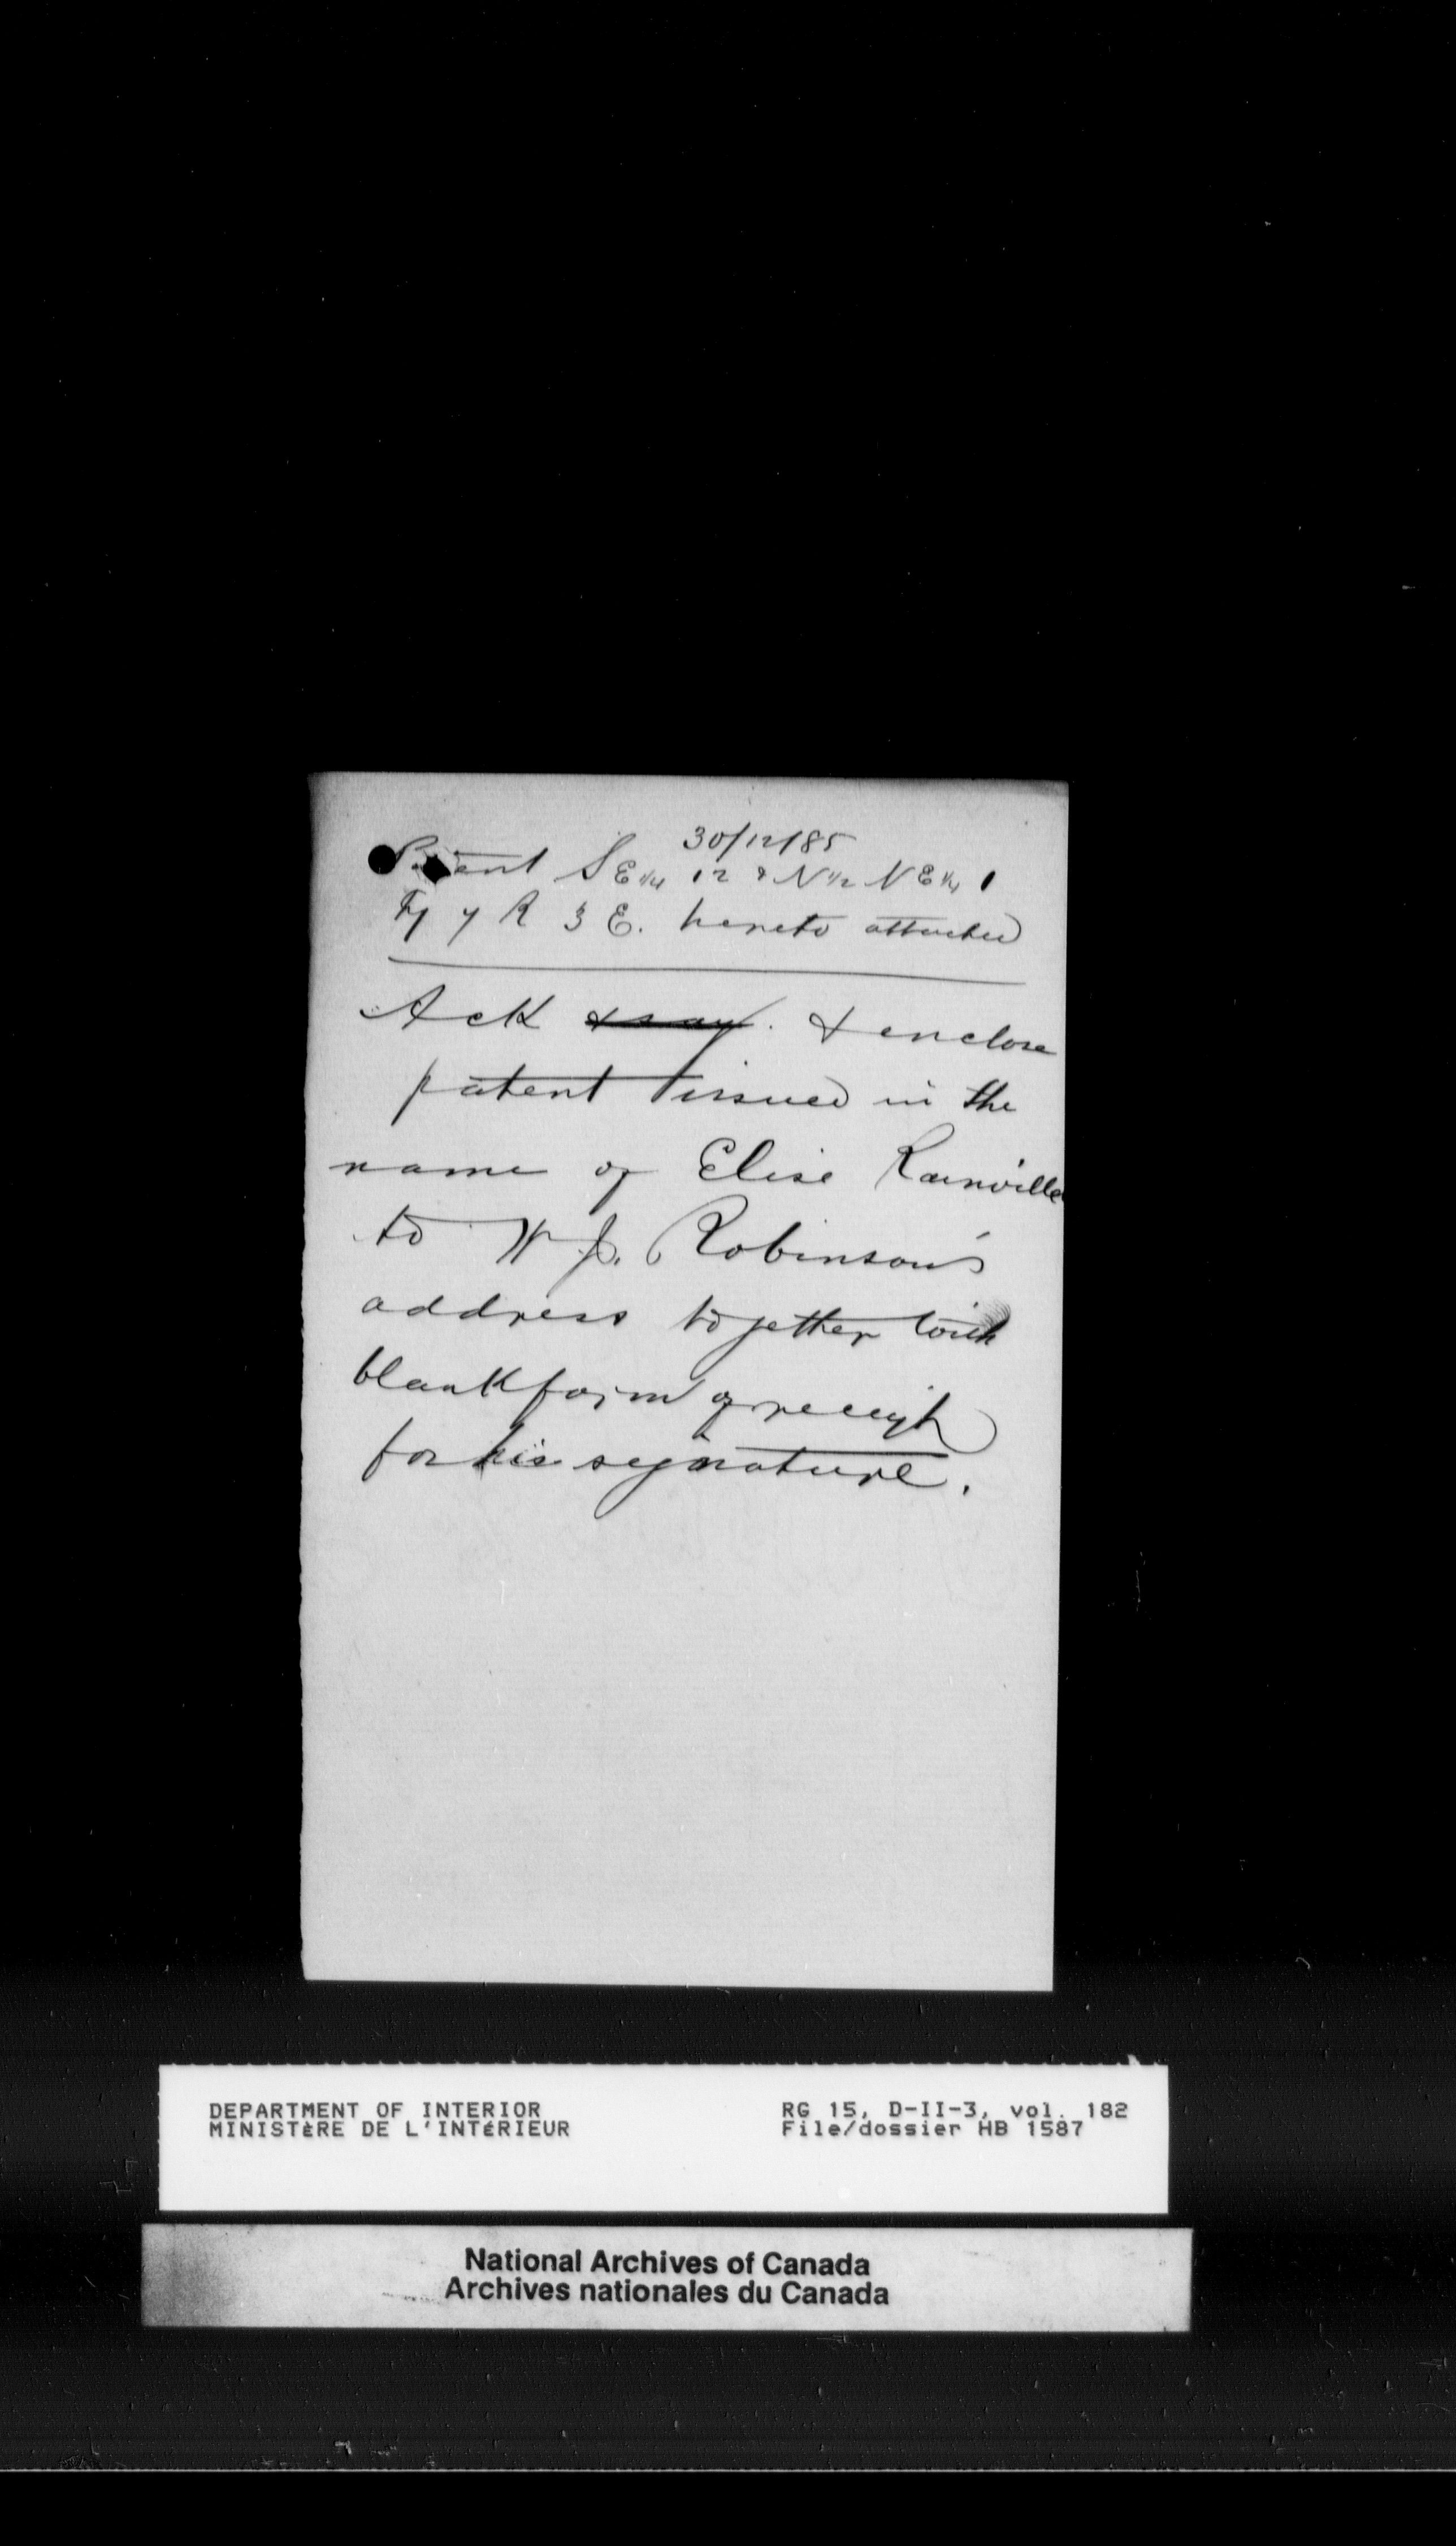 30/12/85
Patent S E 1/4 12 & N 1/2 N E 1/4 1
Tp 7 R 3 E. hereto attached
Ack & say. & enclose
patent issued in the
name of Elise Rainville
to W J. Robinson's
address together with
blank form of receipt
for his signature.
DEPARTMENT OF INTERIOR
MINISTÈRE DE L'INTÉRIEUR
RG 15, D-II-3, vol. 182
File/dossier HB 1587
National Archives of Canada
Archives nationales du Canada